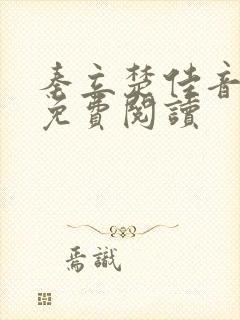 秦立楚佳音
免費閱讀
焉識